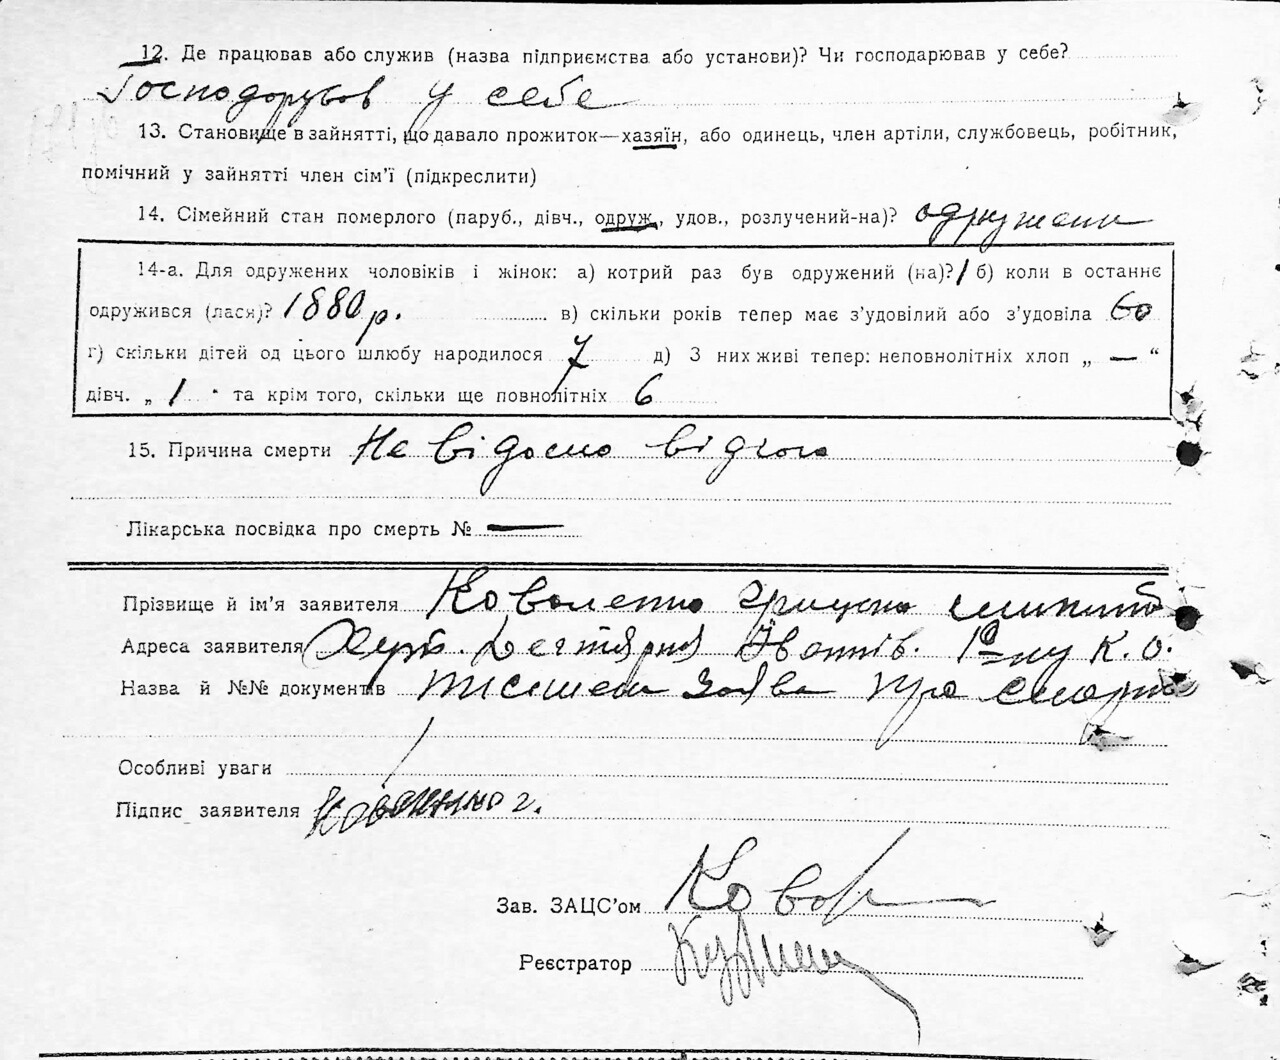 12. Де працював або служив (назва підприємства або установи)? Чи господарював у себе?
Господорував у себе
13. Становище в зайнятті, що давало прожиток—хазяїн, або одинець, член артіли, службовець, робітник,
помічний у зайнятті член сім'ї (підкреслити)
14. Сімейний стан померлого (паруб., дівч., одруж., удов., розлучений-на)? одружени
14-а. Для одружених чоловіків і жінок: а) котрий раз був одружений (на)? 1 б) коли в останнє
одружився (лася)? 1880 р. в) скільки років тепер має з'удовілий або з'удовіла 60
г) скільки дітей од цього шлюбу народилося 7 д) З них живі тепер: неповнолітніх хлоп „ — “
дівч. „ 1 " та крім того, скільки ще повнолітніх 6
15. Причина смерти Не відомо від чого
Лікарська посвідка про смерть № —
Прізвище й ім'я заявителя Коваленко Грицько
Адреса заявителя Хут. Дегтярня 1го ну К. О.
Назва й №№ документів заява про смерть
Особливі уваги
Підпис заявителя Коваленко г.
Зав. ЗАЦС'ом
Реєстратор